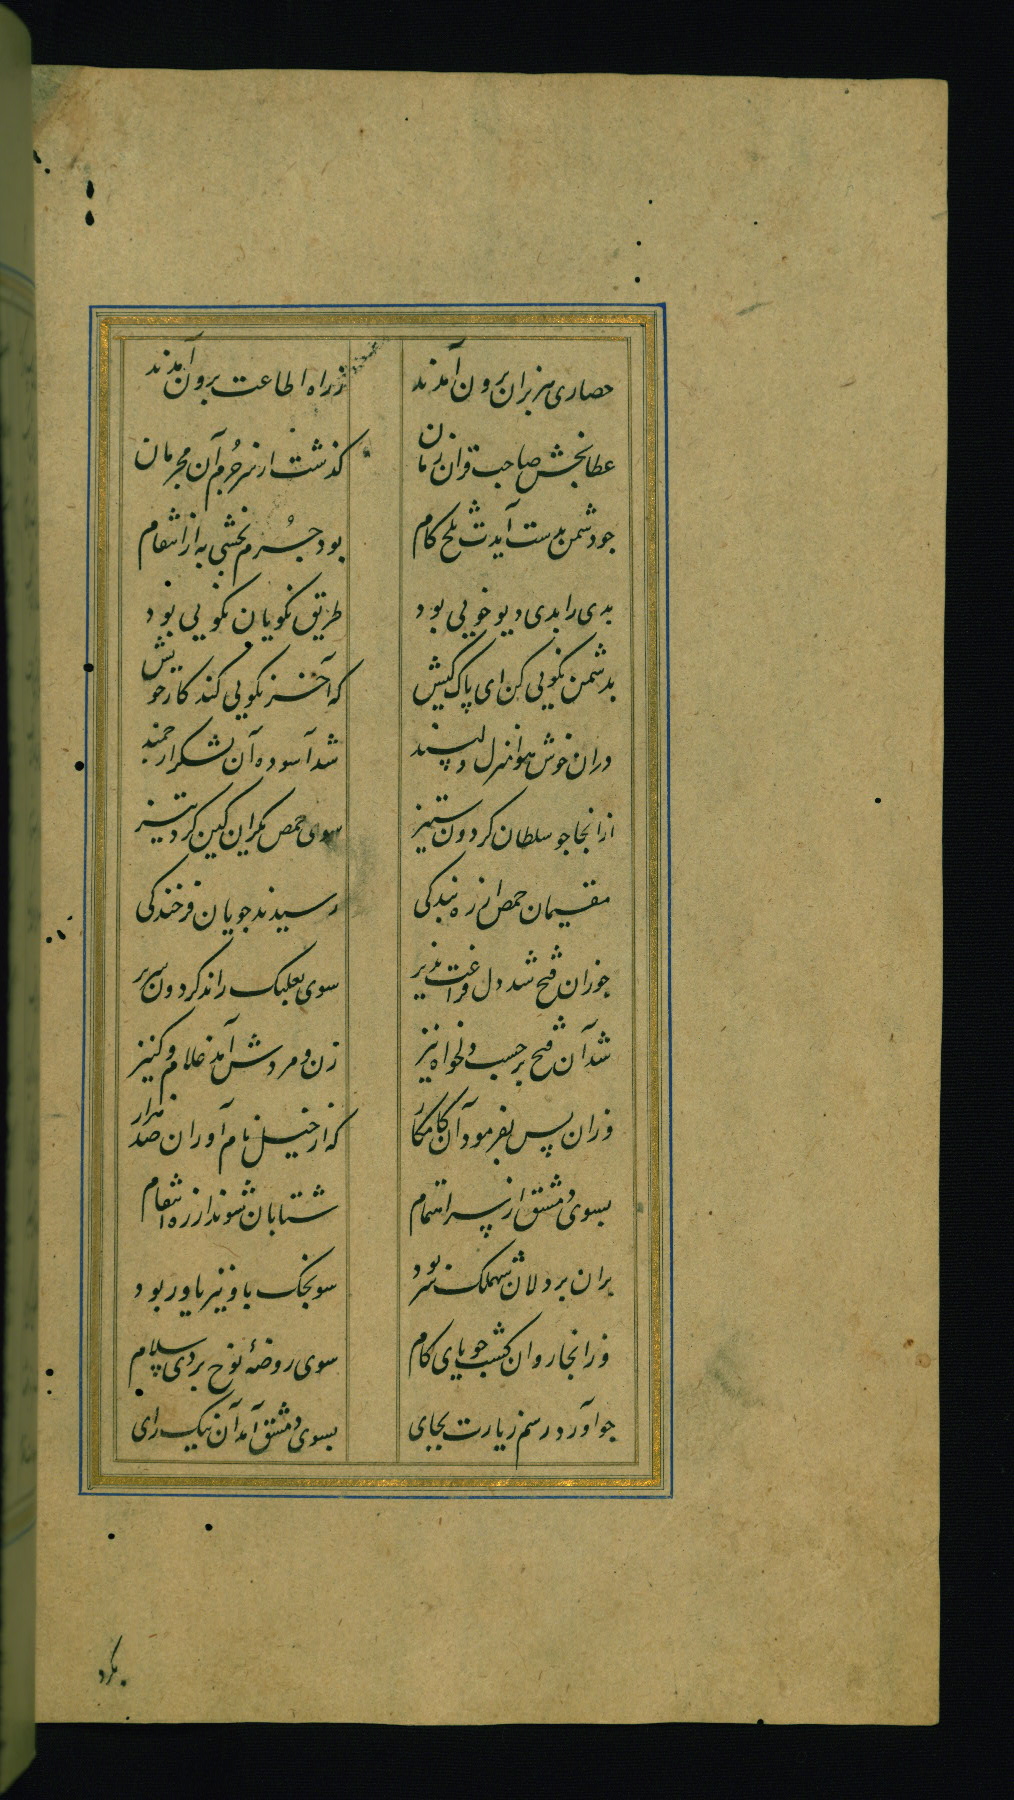 حصاری هزبران برون آمدند زراه اطاعت برون آمدند
عطابخش صاحب قران زمان کذشت از سر جرم آن مجرمان
جو دشمن بدست آیدت تلخ کام بود جرم بخشی به از انتقام
بدی را بدی دیو خویی بود طریق نکویان نکویی بود
بدشمن نکویی کن ای پاک کیش که آخر نکویی کند کار خویش
دران خوش هوا منزل دلپسند شد آسوده آن لشکر ارجمند
ازانجا جو سلطان کردون ستیز سوی حمص یکران کین کرد تیز
مقیمان حمص از ره بندکی رسیدند جویان فرخندکی
جوزان فتح شد دل فراغت پذیر سوی بعلبک راند کردون سریر
شد آن فتح بر حسب دلخواه نیز زن و مردش آمد غلام و کنیز
وزان پس بفرمود آن کامکار که از خیل نام آوران صد هزار
بسوی دمشق از پس اهتمام شتابان شوند از ره انتقام
بران بردلان شهملک سر بود سونجک باو نیز یاور بود
وزانجا روان کشت جویای کام سوی روضهٔ نوح بردی سلام
جو آورد رسم زیارت بجای بسوی دمشق آمد آن نیک رای
بکرد